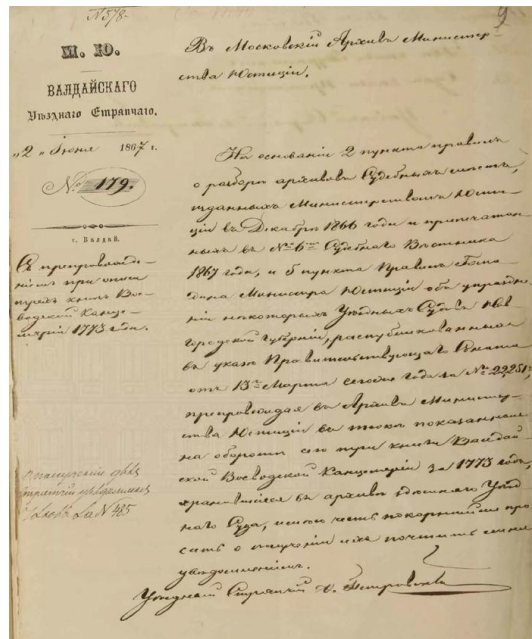 N 578
9
М. Ю.
ВАЛДАЙСКАГО
Уѣзднаго Стряпчаго.
„2„ Іюня 1867 г.
№ 179.
г. Валдай.
Съ препровожде-
ніемъ при описи
трехъ книгъ Вое-
водской Канце-
ляріи 1773 года.
Въ Московскій Архивъ Министер-
ства Юстиціи.
На основаніи 2 пункта правилъ
о разборѣ архивовъ Судебныхъ мѣстъ,
изданныхъ Министерствомъ Юсти-
ціи въ Декабрѣ 1866 года и припечатан-
ныхъ въ № 6мъ Судебнаго Вѣстника
1867 года, и 5 пункта Правилъ Госпо-
дина Министра Юстиціи объ упраздне-
ніи некоторыхъ Уѣздныхъ Судовъ Нов
городской Губерніи, распубликованныхъ
въ указѣ Правительствующаго Сената
отъ 13го Марта сего года за № 22251м,
препровождая въ Архивъ Министер-
ства Юстиціи въ томъ показанныя
на оборотѣ сего три книги Валдай
ской Воеводской Канцеляріи за 1773 годъ,
хранившіяся въ архивѣ здѣшняго Уѣзд
наго Суда, имѣю честь покорнѣйше про
сить о полученіи ихъ почтить меня
увѣдомленіемъ.
Уѣздный Стряпчій Петровскій